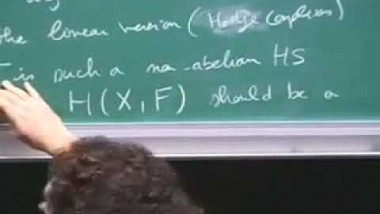 the linear version (Hodge complexes)
is such a non-abelian HS
H(X, F) should be a